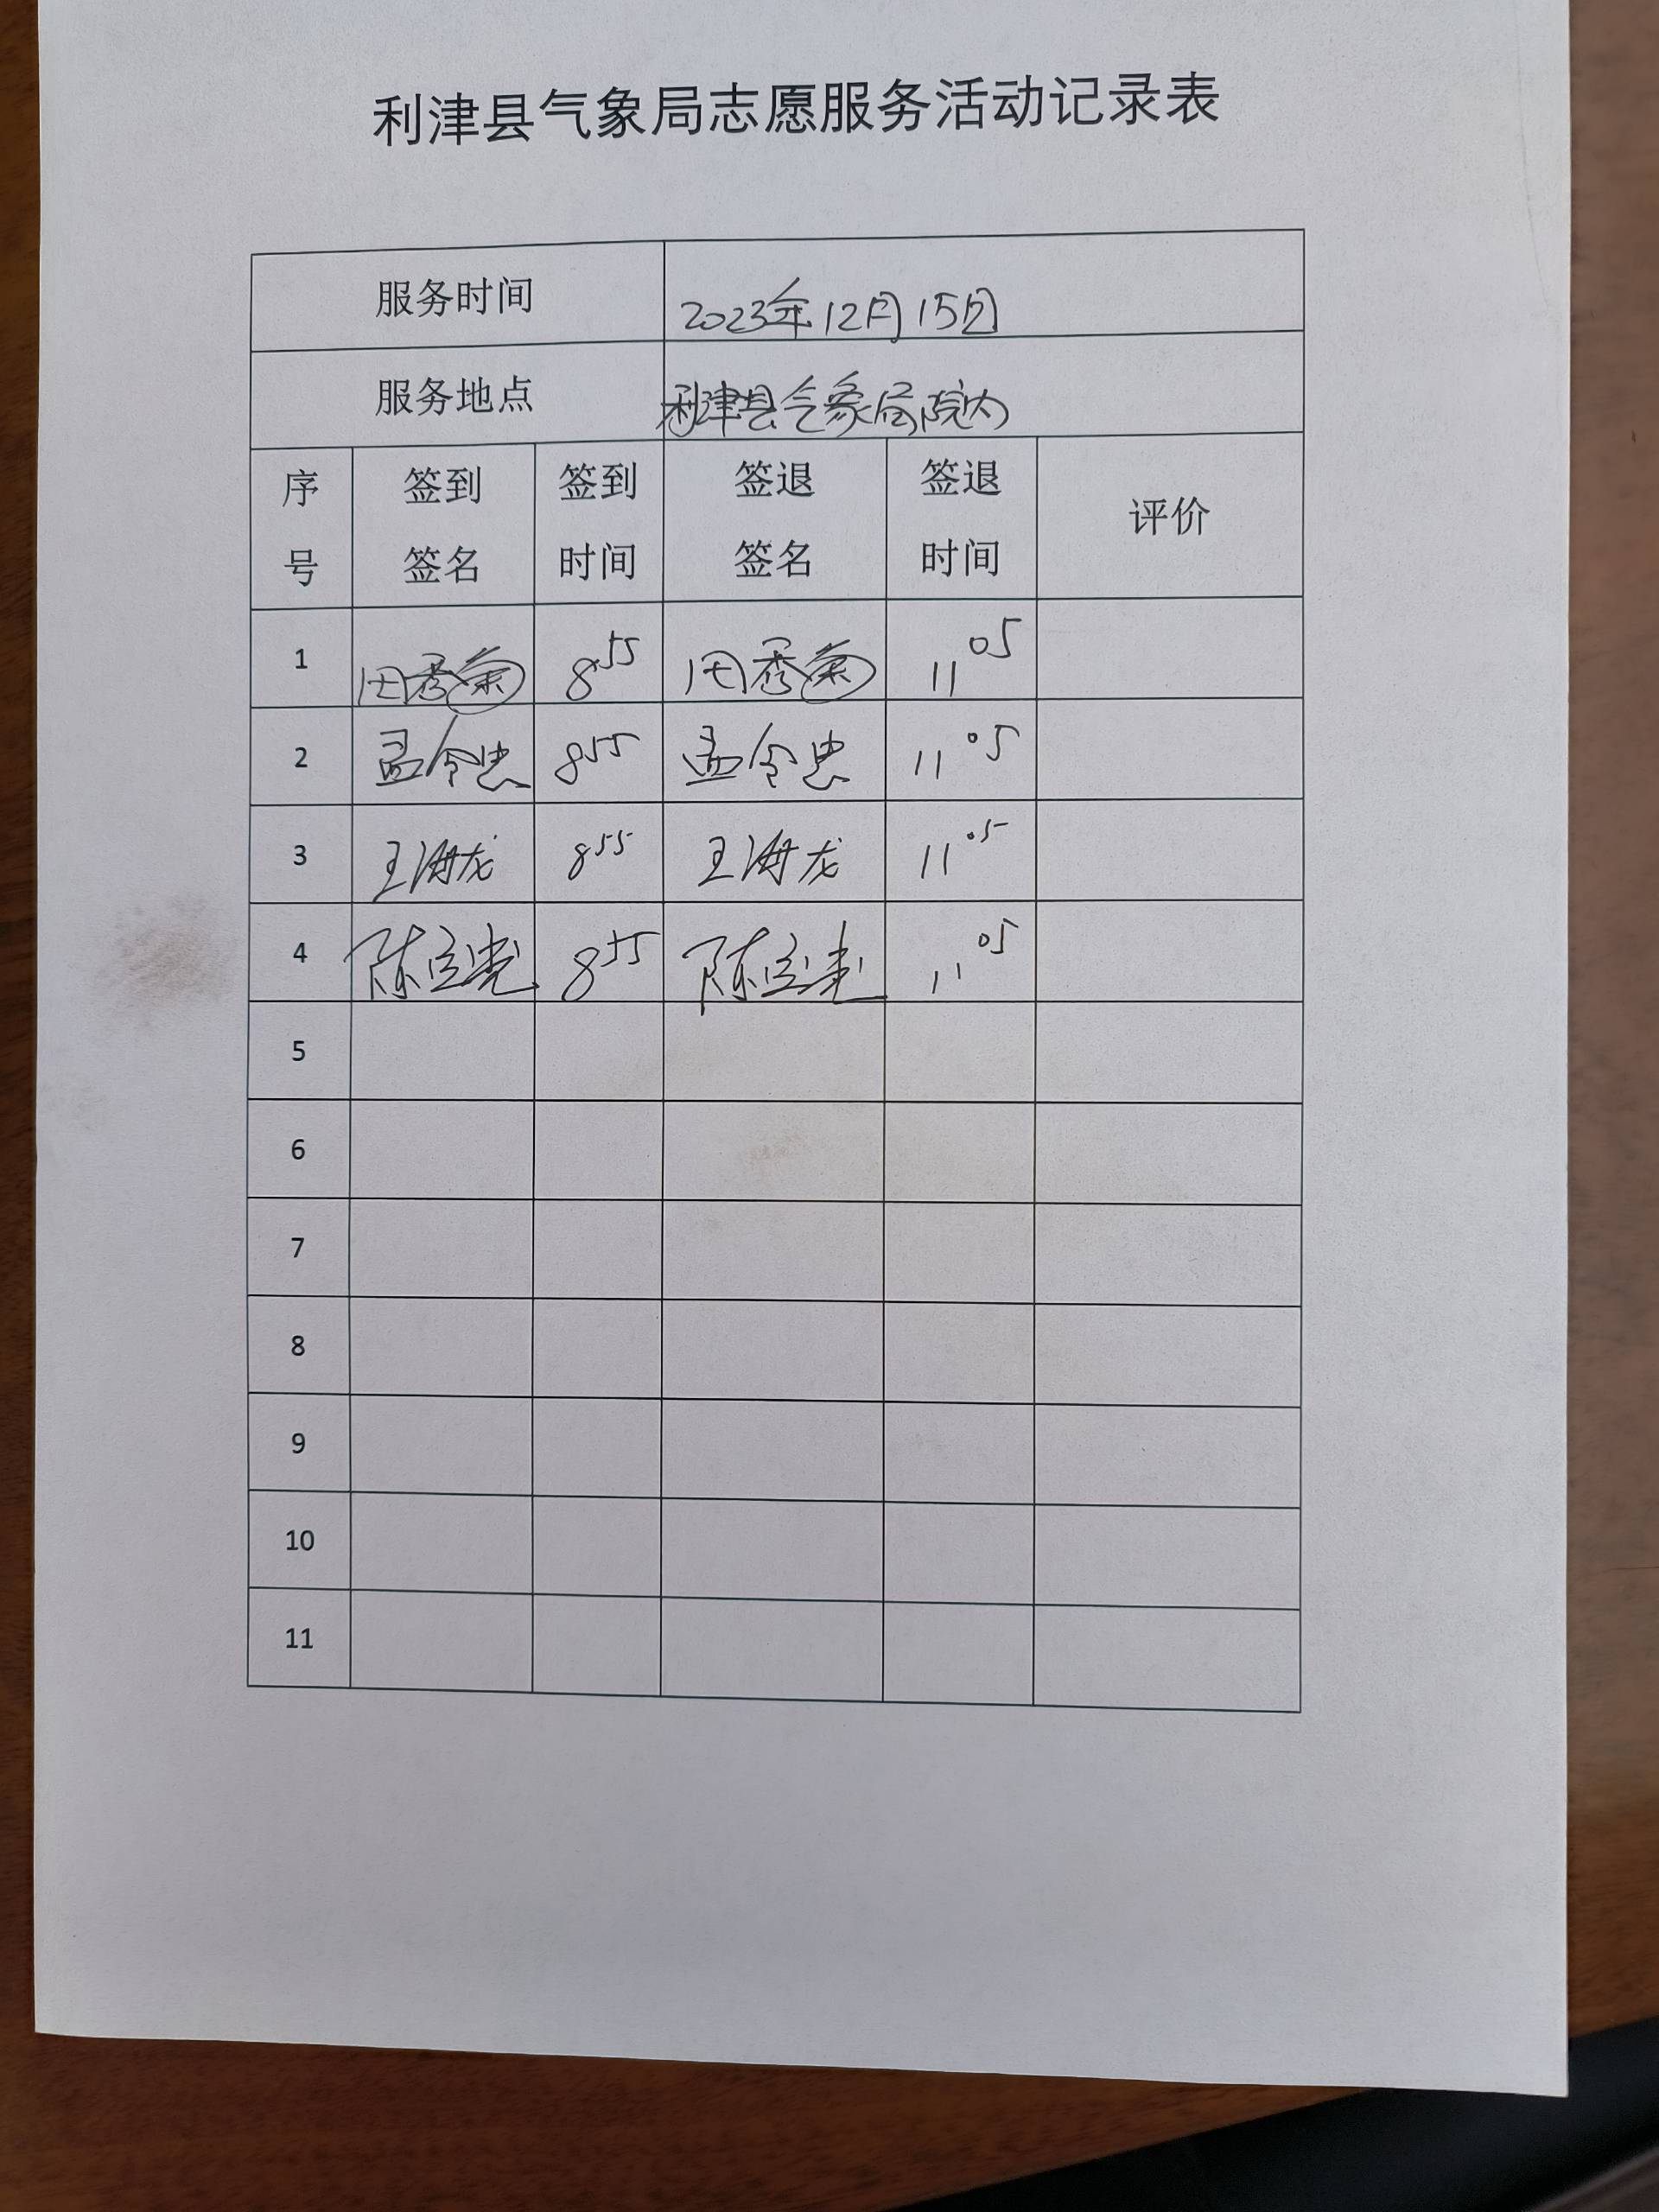 利津县气象局志愿服务活动记录表
服务时间 2023年12月15日
服务地点 利津县气象局院内
序号 签到签名 签到时间 签退签名 签退时间 评价
1 田秀菊 8 55 田秀菊 11 05
2 孟令忠 8 55 孟令忠 11 05
3 王海龙 8 55 王海龙 11 05
4 陈 8 55 陈 11 05
5
6
7
8
9
10
11